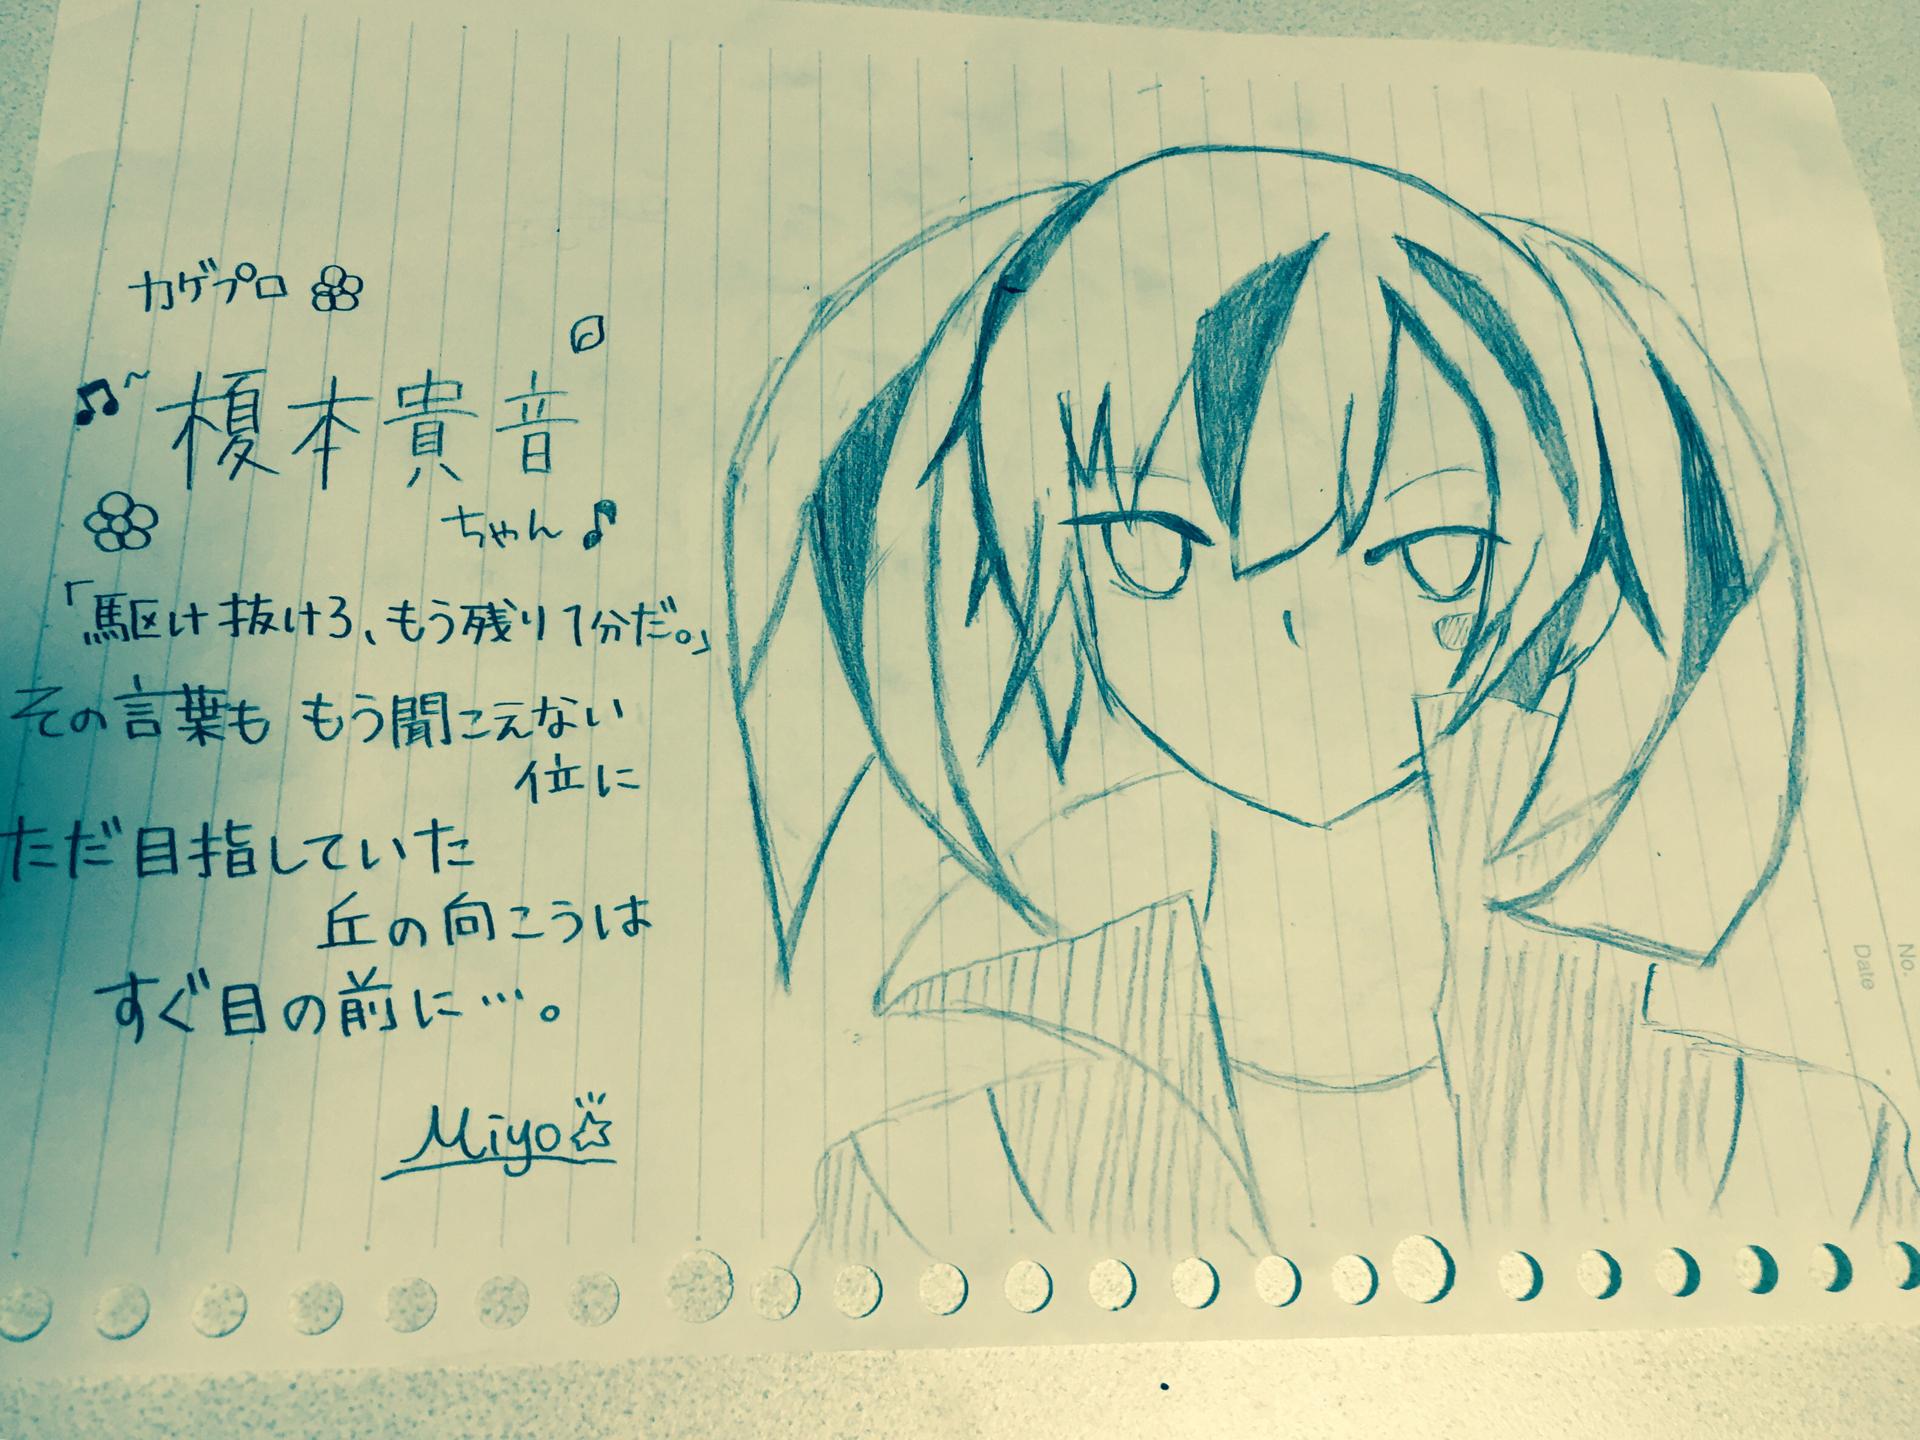 カゲプロ
榎本貴音
ちゃん
「駆け抜けろ、もう残り1分だ。」
その言葉も もう聞こえない
位に
ただ目指していた
丘の向こうは
すぐ目の前に…。
Miyo
No.
Date